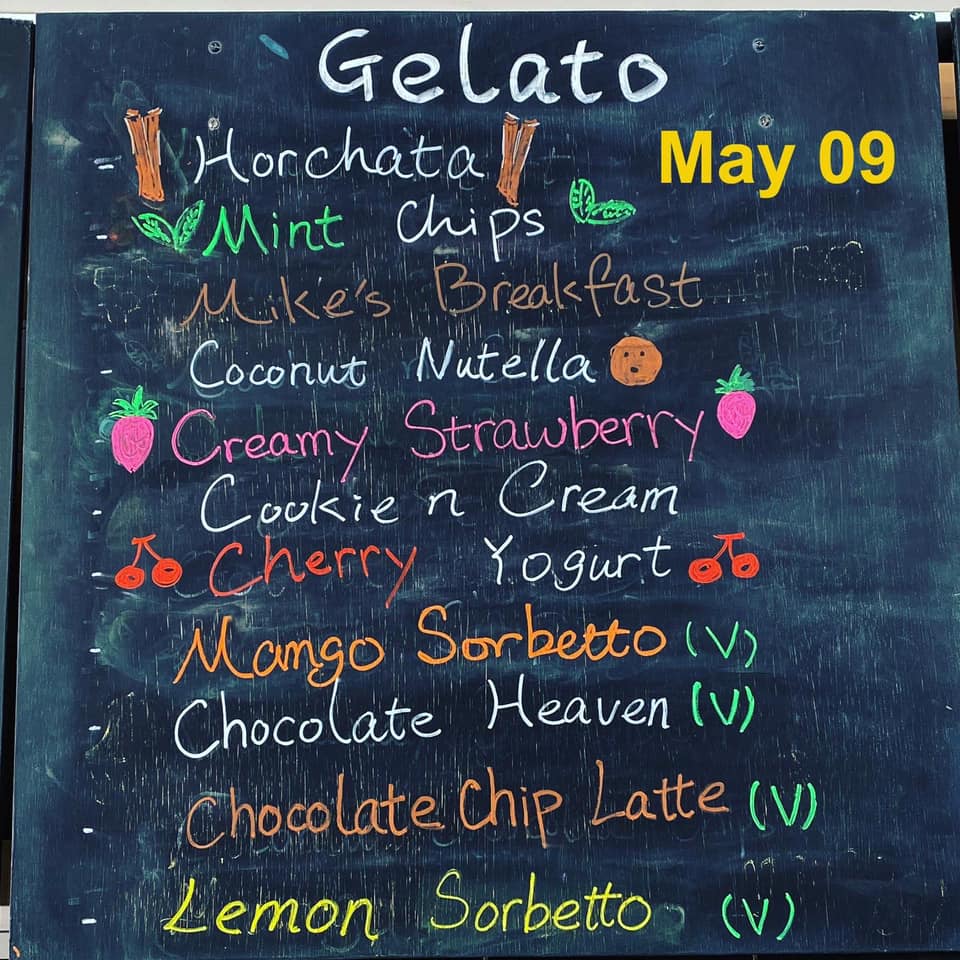 Gelato
- Horchata
May 09
- Mint Chips
Mike's Breakfast
- Coconut Nutella
- Creamy Strawberry
- Cookie n Cream
- Cherry Yogurt
- Mango Sorbetto (V)
- Chocolate Heaven (V)
- Chocolate Chip Latte (V)
- Lemon Sorbetto (V)